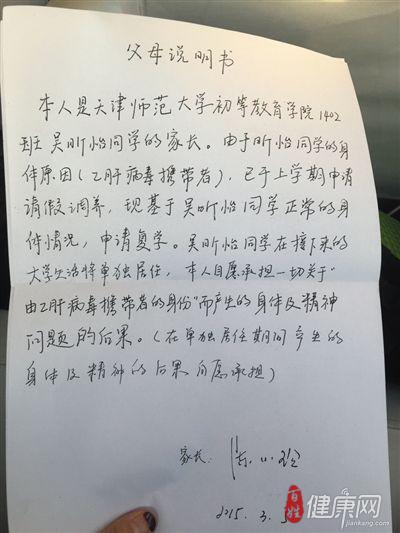 父母说明书
本人是天津师范大学初等教育学院1402
班吴昕怡同学的家长。由于昕怡同学的身
体原因(乙肝病毒携带者),已于上学期申请
请假调养,现基于吴昕怡同学正常的身
体情况,申请复学。吴昕怡同学在接下来的
大学生活将单独居住,本人自愿承担一切关于"
由乙肝病毒携带者的身份"而产生的身体及精神
问题的后果。(在单独居住期间产生的
身体及精神的后果自愿承担)
家长:
2015.3.
百姓健康网
jiankang.com